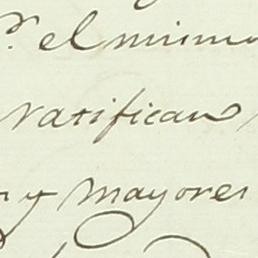 el mismo
ratifican
y mayores